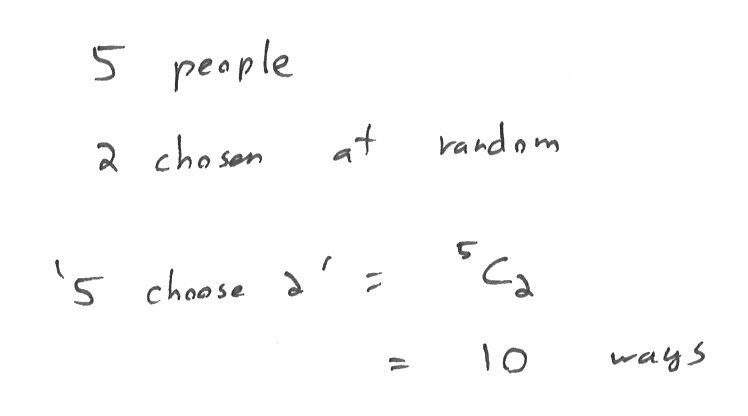 5 people
2 chosen at random
'5 choose 2' = ⁵C₂
= 10 ways